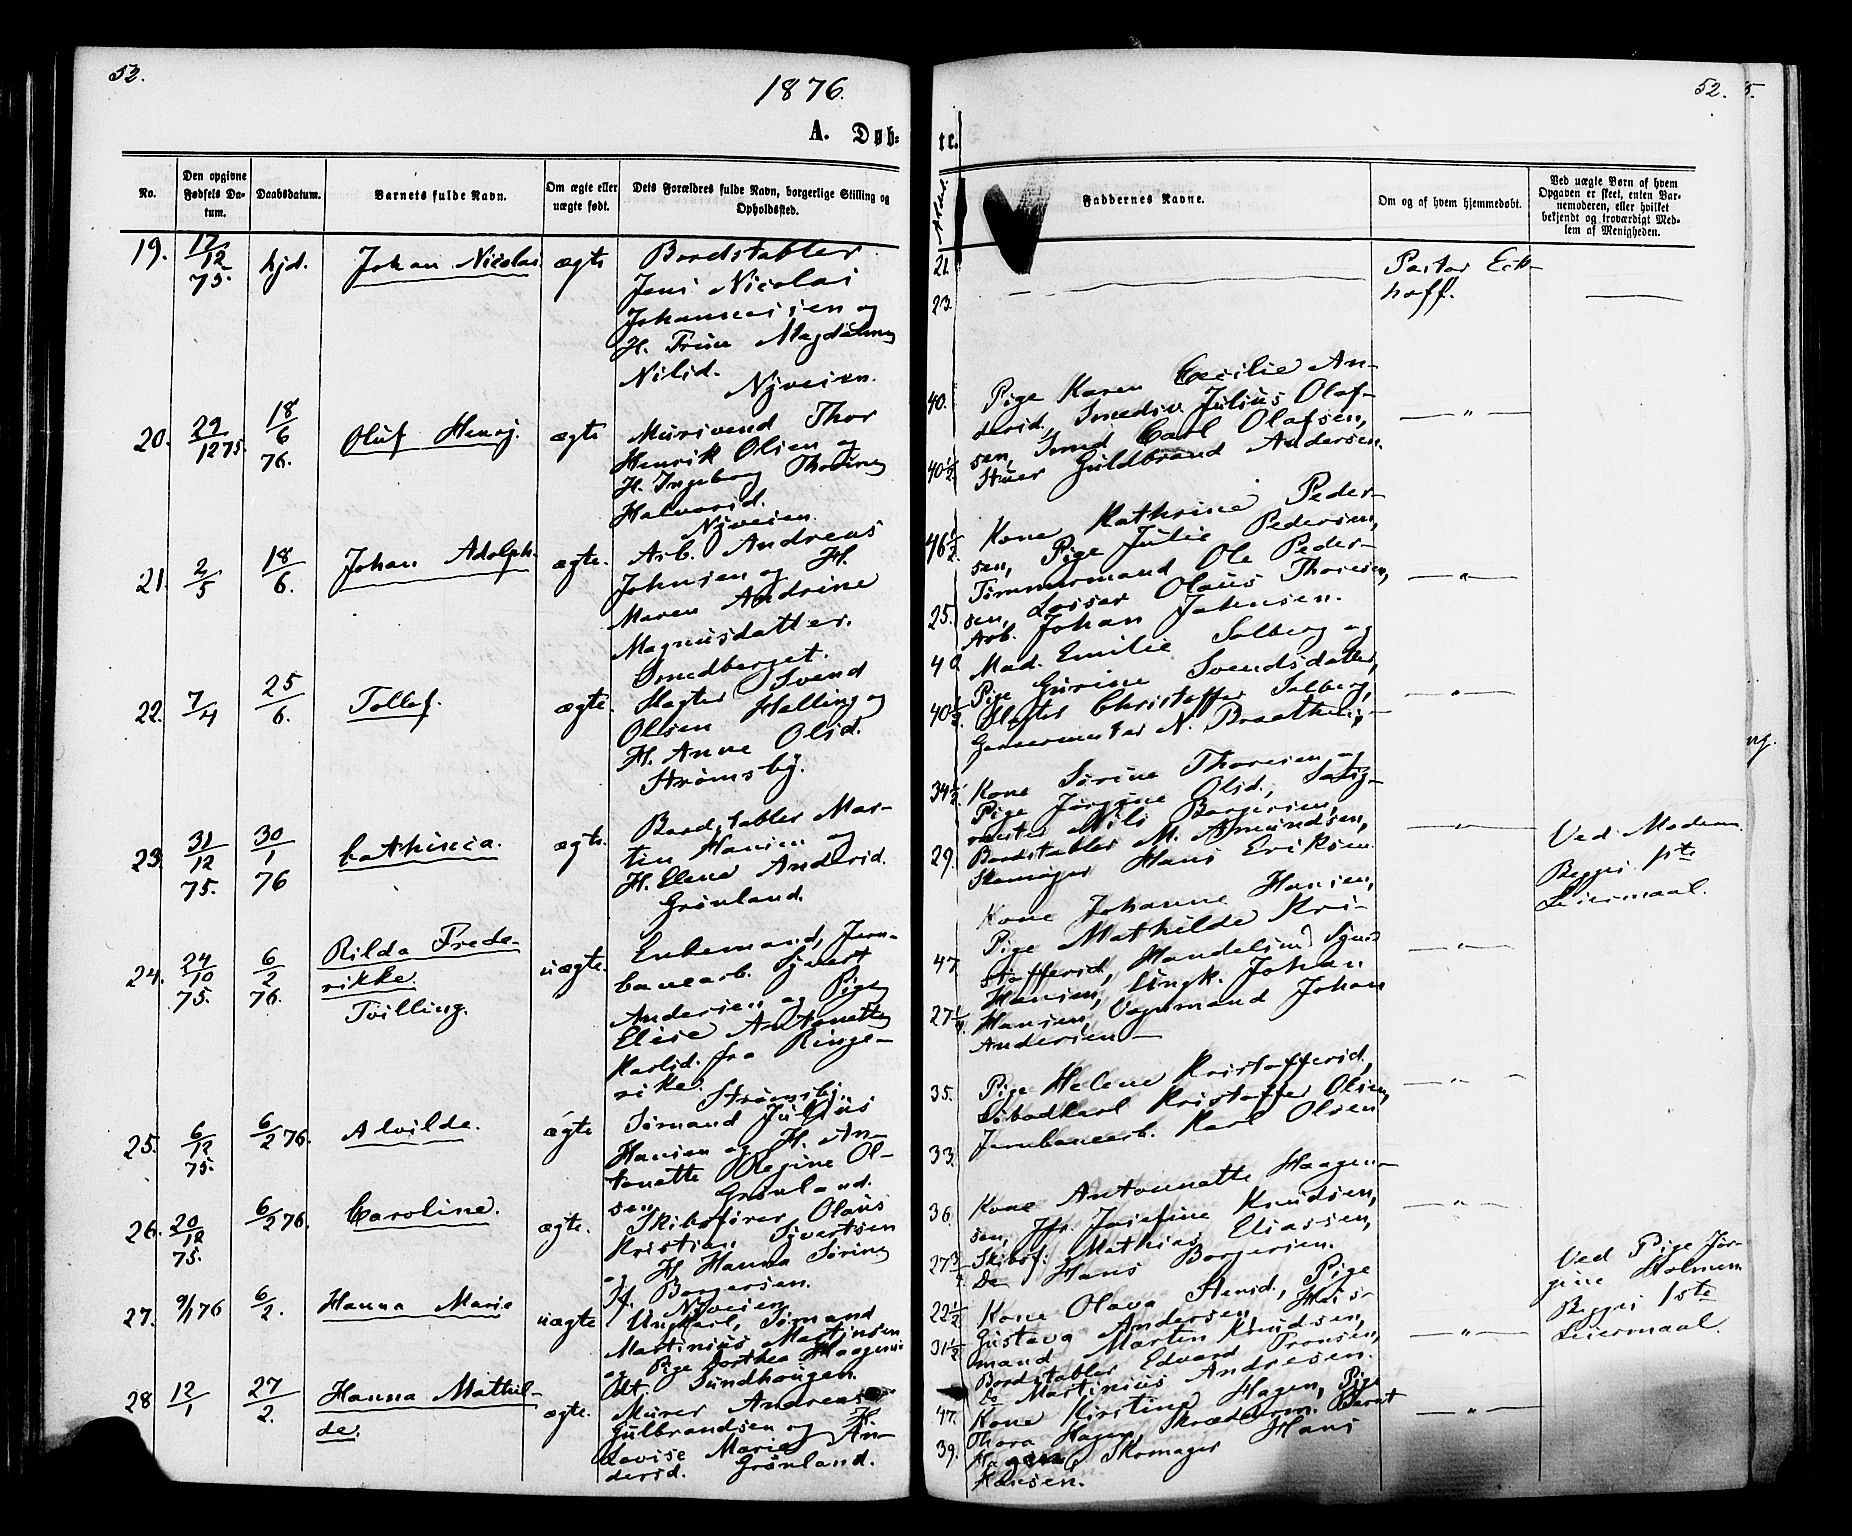 52.
1876.
A. Døb=
No.
Den opgivne Fødsels Da-
tum.
Daabsdatum.
Barnets fulde Navn.
Om ægte eller
uægte født.
Dets Forældres fulde Navn, borgerlige Stilling og
Opholdssted.
19. 17/12 75. hjd. Johan Nicolai ægte
Bordstabler
Jens Nicolai
Johannessen og
H. Magdalene
Nilsd.
Nyveien.
20. 29/12 75. 18/6 76. Oluf Henrij. ægte
Thor
Henrik Olsen og
H. Ingeborg Thorine
Halvorsd.
Nyveien.
21. 2/5 18/6. Johan Adolph. ægte.
Arb. Andreas
Johnsen og H.
Maren Andrine
Magnusdatter.
22. 7/4 25/6. Tollef. ægte.
Slagter Svend
Olsen Halling og
H. Anne Olsd.
Strømsby.
23. 31/12 75. 30/1 76 Cathinca. ægte.
Bordstabler Mar-
tin Hansen og
H. Elene Andersd.
Grønland.
24. 24/10 75. 6/2 76. Rilda Frede-
rikke
Tvilling. uægte.
Enkemand, Jern-
banearb. Syvert
Andersen og Pige
Elise Antonette
Karlsd. fra Ringe-
rike.
Strømsby.
25. 6/12 75. 6/2 76. Alvilde. ægte
Sømand Julius
Hansen og H. An-
tonette Regine Ol-
sen. Grønland.
26. 20/12 75. 6/2 76. Caroline. ægte.
Skibsfører Olaus
Kristian Syvertsen
og H. Hanna Sørine
Borgersen.
Nyveien.
27. 9/1 76 6/2. Hanna Marie uægte
Ungkarl, Sømand
Martinius Martinsen
og Pige Dorthea
Sundhougen.
28 12/1 27/2. Hanna Mathil-
de. ægte.
Murer Andreas
Gulbrandsen og H.
Lovise Marie An-
dersd. Grønland.
te.
52.
5.
Faddernes Navne.
Om og af hvem hjemmedøbt.
Ved uægte Børn af hvem
Opgaven er skeet, enten Bar-
nemoderen, eller hvilket
bekjendt og troværdigt Med-
lem af Menigheden.
21.
23.
Pastor Eck-
hoff.
40.
40 1/2
Pige Karen Cecilie An-
dersd. Julius Olaf-
sen, Carl Olafsen,
Guldbrand Andersen.
46 1/2
25.
Kone Kathrine Peder-
sen, Pige Julie Pedersen,
Tømmermand Ole Peder-
sen, Losser Olaus Thoresen,
Arb. Johan Johnsen.
40
40 1/2.
Mad. Emilie Solberg og
Pige Gurine Svendsdatter,
Slagter Christoffer Solberg,
N.
34 1/2.
29.
Kone Sørine Thoresen og
Pige Jørgine Olsd.,
Nils Borgersen,
Bordstabler M. Amundsen,
Skomager Hans Eriksen
47
27 1/4.
Kone Johanne Hansen,
Pige Mathilde Kri-
stoffersd.,
Hansen, Ungk. Johan
Hansen, Vognmand Johan
Andersen
Ved Moderen.
Begges 1ste
Leiermaal.
35.
33.
Pige Helene Kristoffersd,
Kristoffer Olsen,
Jernbanearb. Karl Olsen
36.
27 3/4
Kone Antonnette Haagen-
sen, Jfr. Josefine Knudsen,
Skibsf. Mathias Eliassen,
Do Hans Borgersen.
22 1/2
31 1/2
Kone Olava Stensd., Pige
Gustava Andersen, Hus-
mand Martin Knudsen,
Bordstabler Edvard Fransen,
do Martinius Andresen.
Ved Pige Jør-
gine Holmen
Begges 1ste
Leiermaal.
47.
39.
Kone Kirstine Hagen, Pige
Thora Hagen, Bernt
Hagen, Skomager Hans
Hansen.